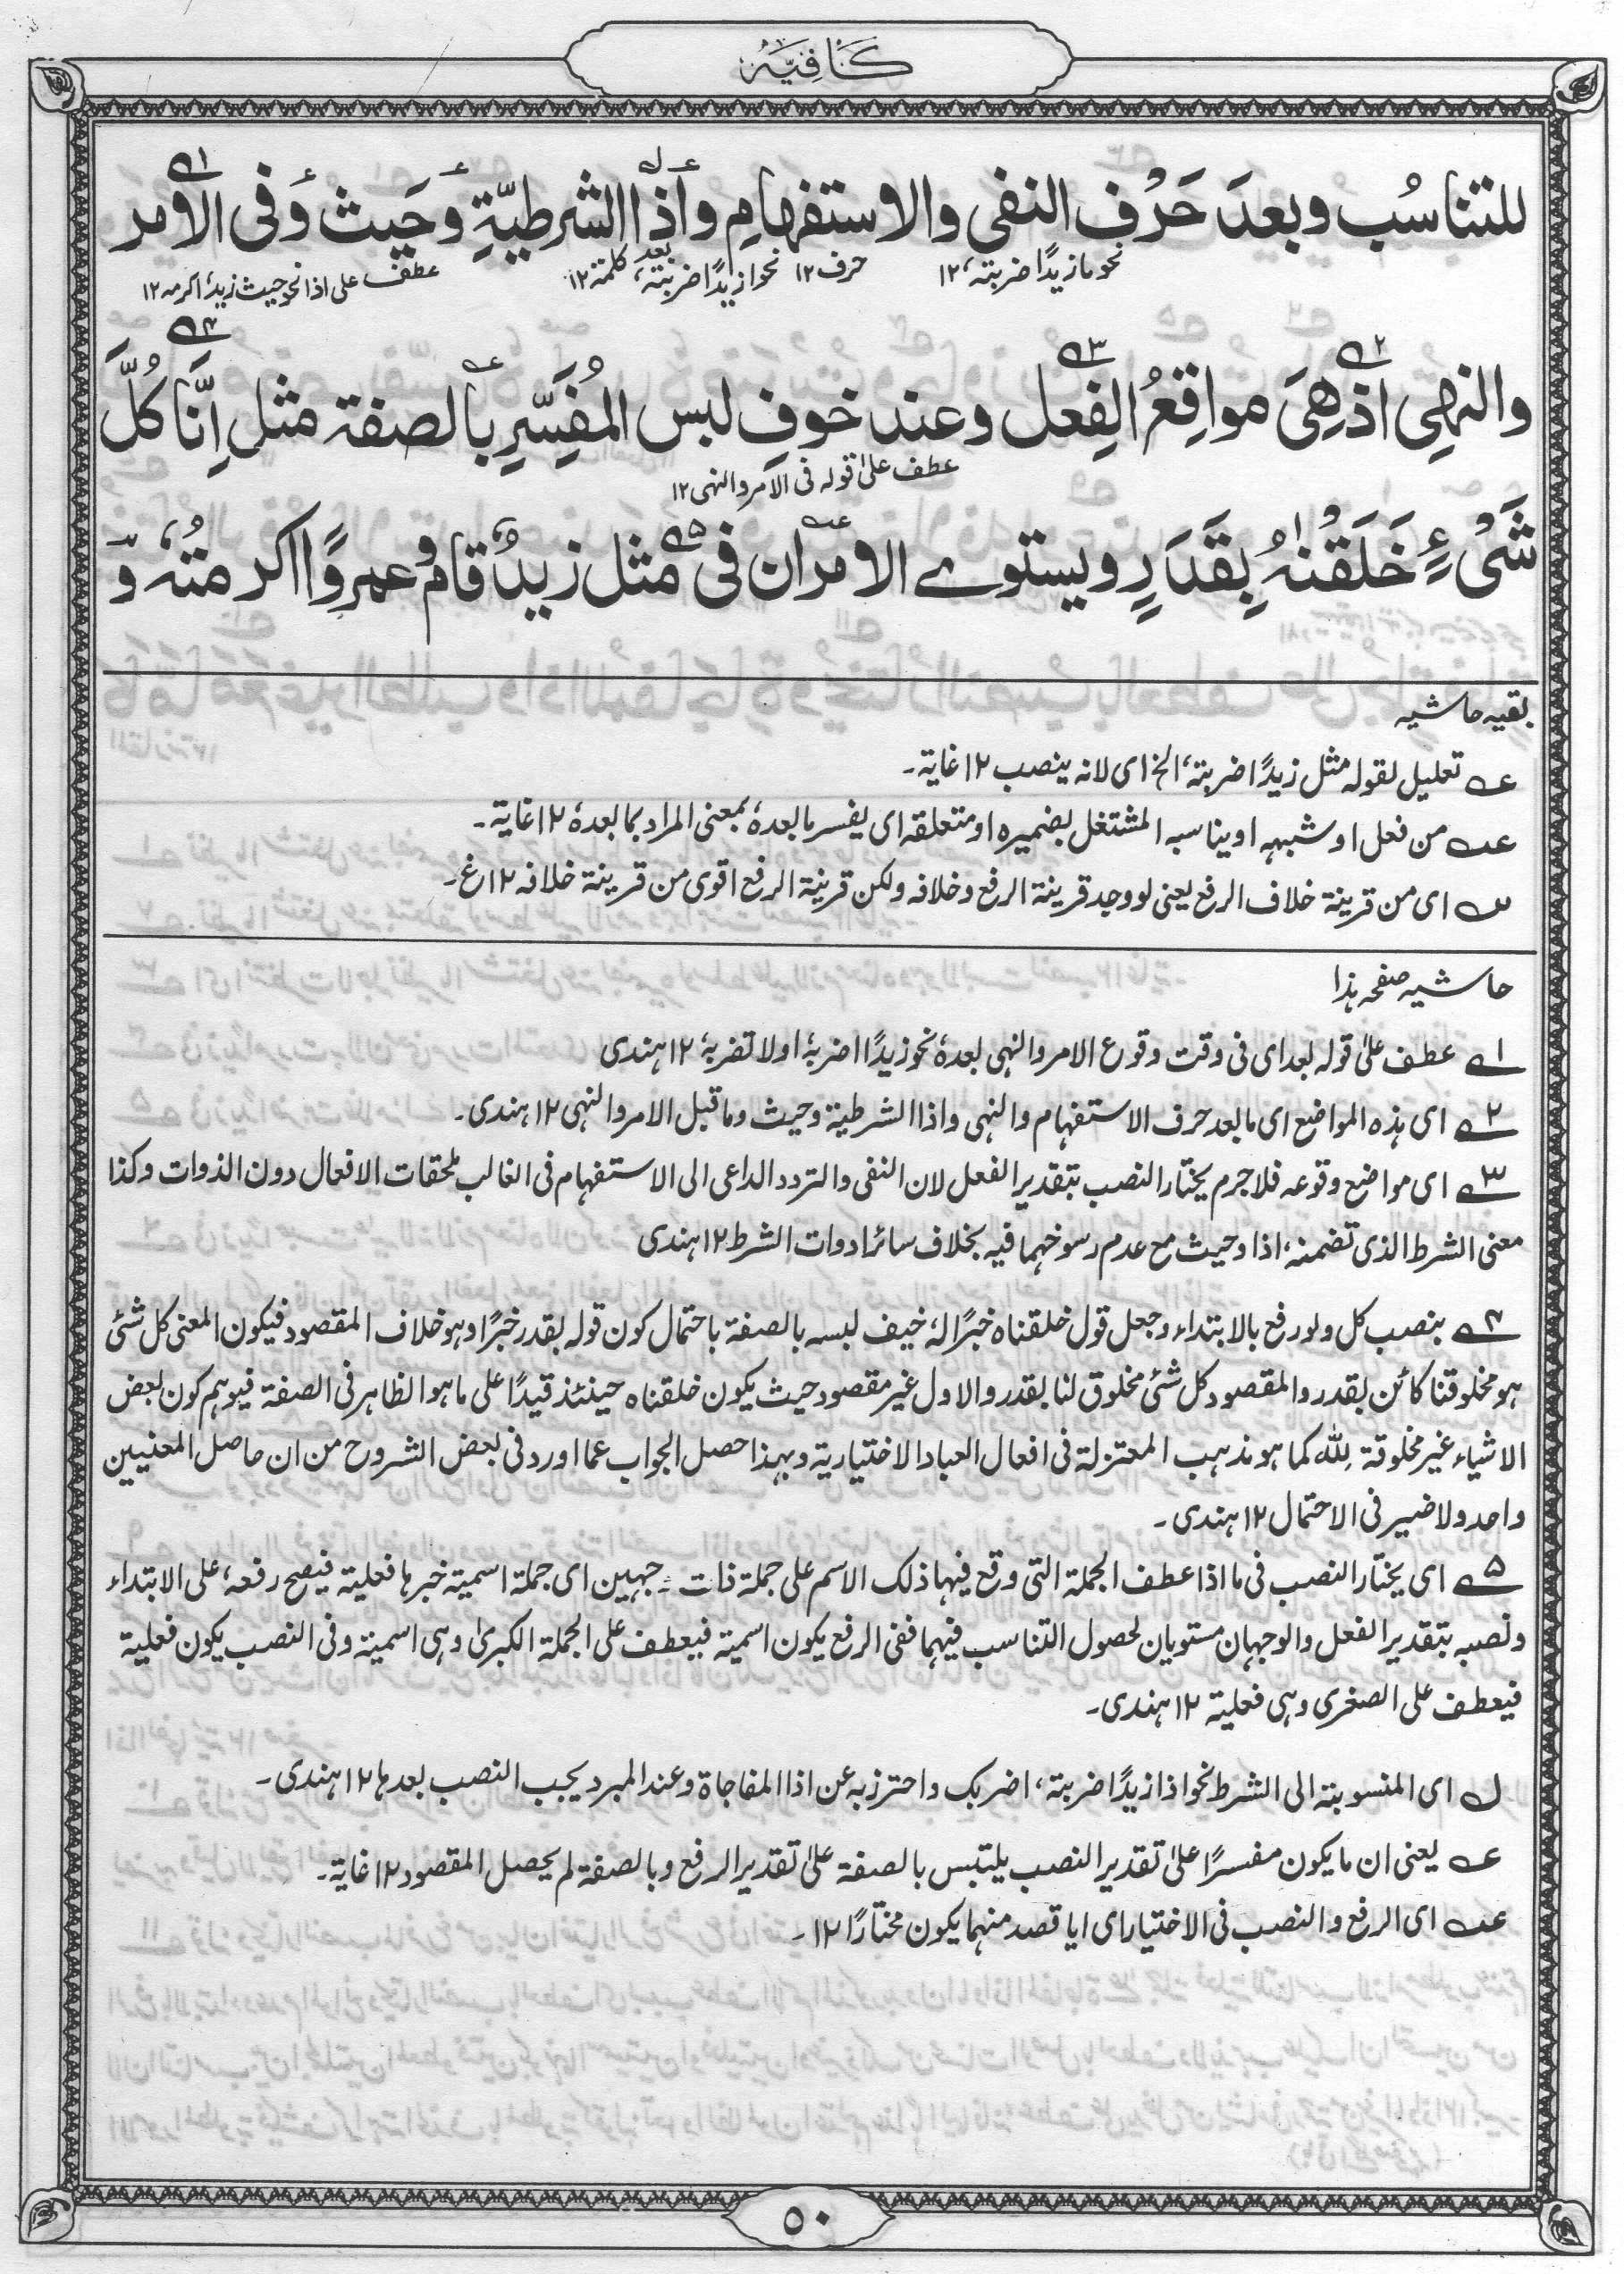 كَافِيَه
للتناسُب وبعدَ حَرْف النفي والاستفهامِ واذا الشرطيّةِ وحَيث وفى الامر
نحو ما زيدًا ضربته ١٢
حرف ١٢
نحو ازيدًا ضربته ١٢
بعد كلمة ١٢
عطف على اذا نحو حيث زيدًا اكرمه ١٢
والنهىِ اذ هِىَ مواقِعُ الفِعل وعند خوفِ لبس المُفَسِّرِ بالصفة مثل اِنَّا كُلَّ
عطف علىٰ قوله فى الامر والنهى ١٢
شَىْءٍ خَلَقْنٰهُ بِقَدَرٍ ويستوے الامران فى مثل زيدٌ قامَ وعمروًا اكرمتُهٗ و
بقیہ حاشیہ
عہ تعليل لقوله مثل زيدًا ضربته، الخ اى لانه ينصب ١٢ غاية۔
عہ من فعل او شبهه او يناسبه المشتغل بضميره او متعلقه اى يفسر ما بعدهٗ بمعنى المراد بما بعدهٗ ١٢ غاية۔
سہ اى من قرينة خلاف الرفع يعنى لو وجد قرينة الرفع وخلافه ولكن قرينة الرفع اقوى من قرينة خلافه ١٢ غ۔
حاشیہ صفحہ ہذا
١ے عطف علىٰ قوله بعد اى فى وقت وقوع الامر والنهى بعدهٗ نحو زيدًا اضربهٗ او لا تضربهٗ ١٢ ہندى
٢ے اى ہذه المواضع اى ما بعد حرف الاستفهام والنهى واذا الشرطية وحيث وما قبل الامر والنهى ١٢ ہندى۔
٣ے اى مواضع وقوعه فلا جرم يختار النصب بتقدير الفعل لان النفى والتردد الداعى الى الاستفهام فى الغالب ملحقات الافعال دون الذوات وكذا
معنى الشرط الذى تضمنه، اذا وحيث مع عدم رسوخهما فيه بخلاف سائر ادوات الشرط ١٢ ہندى
٤ے بنصب كل ولو رفع بالابتداء وجعل قول خلقناه خبرًا لهٗ خيف لبسه بالصفة باحتمال كون قوله بقدر خبرًا وهو خلاف المقصود فيكون المعنى كل شئ
هو مخلوقنا كائن بقدر والمقصود كل شئ مخلوق لنا بقدر والاول غير مقصود حيث يكون خلقناه حينئذ قيدًا على ما هو الظاهر فى الصفة فيوهم كون بعض
الاشياء غير مخلوقة لِلّٰه كما هو مذهب المعتزلة فى افعال العباد الاختيارية وبهذا حصل الجواب عما اورد فى بعض الشروح من ان حاصل المعنيين
واحد ولا ضير فى الاحتمال ١٢ ہندى۔
٥ے اى يختار النصب فى ما اذا عطف الجملة التى وقع فيها ذلك الاسم على جملة ذات جهين اى جملة اسمية خبرها فعلية فيصح رفعه، على الابتداء
ونصبه بتقدير الفعل والوجهان مستويان لحصول التناسب فيهما ففى الرفع يكون اسمية فيعطف على الجملة الكبرىٰ وهى اسمية وفى النصب يكون فعلية
فيعطف على الصغرى وهى فعلية ١٢ ہندى۔
ل اى المنسوبة الى الشرط نحو اذا زيدًا ضربته، اضربك واحترز به عن اذا المفاجاة وعند المبرد يجب النصب بعدها ١٢ ہندى۔
عہ يعنى ان ما يكون مفسرًا علىٰ تقدير النصب يلتبس بالصفة علىٰ تقدير الرفع وبالصفة لم يحصل المقصود ١٢ غاية۔
عہ اى الرفع والنصب فى الاختيار اى ايا قصد منهما يكون مختارًا ١٢۔
٥٠